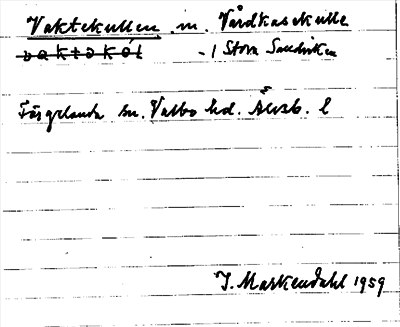 Vaktekullen m. Vårdkasekulle
vaktəkol - 1 Stora
Färgelanda sn. Valbo hd. Älvsb. l
J. Markendahl 1959